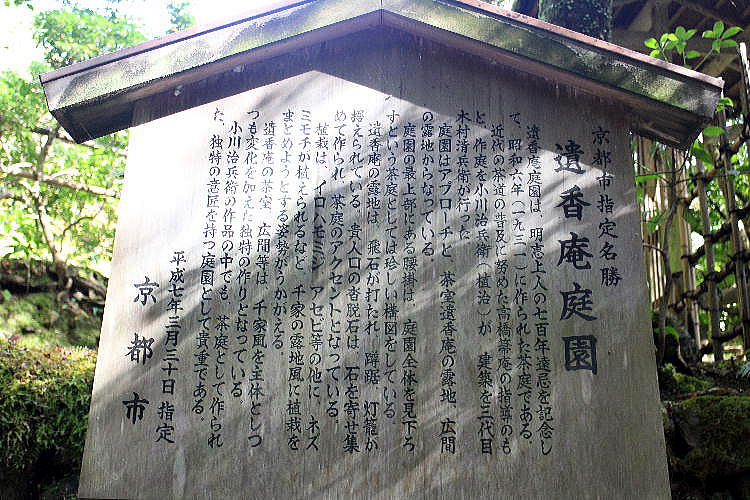 京都市指定名勝
遺香庵庭園
遺香庵庭園は、明恵上人の七百年遠忌を記念し
て、昭和六年（一九三一）に作られた茶庭である。
近代の茶道の普及に努めた高橋箒庵の指導のも
と、作庭を小川治兵衛（植治）が、建築を三代目
木村清兵衛が行った。
庭園はアプローチと、茶室遺香庵の露地、広間
の露地からなっている。
庭園の最上部にある腰掛は、庭園全体を見下ろ
すという茶庭としては珍しい構図をしている。
遺香庵の露地は、飛石が打たれ、蹲踞、灯籠が
据えられている。貴人口の沓脱石は、石を寄せ集
めて作られ、茶庭のアクセントとなっている。
植栽は、イロハモミジ、アセビ等の他に、ネズ
ミモチが植えられるなど、千家の露地風に植栽を
まとめようとする姿勢がうかがえる。
遺香庵の茶室、広間等は、千家風を主体としつ
つも変化を加えた独特の作りとなっている。
小川治兵衛の作品の中でも、茶庭として作られ
た、独特の意匠を持つ庭園として貴重である。
平成七年三月三十日 指定
京都市